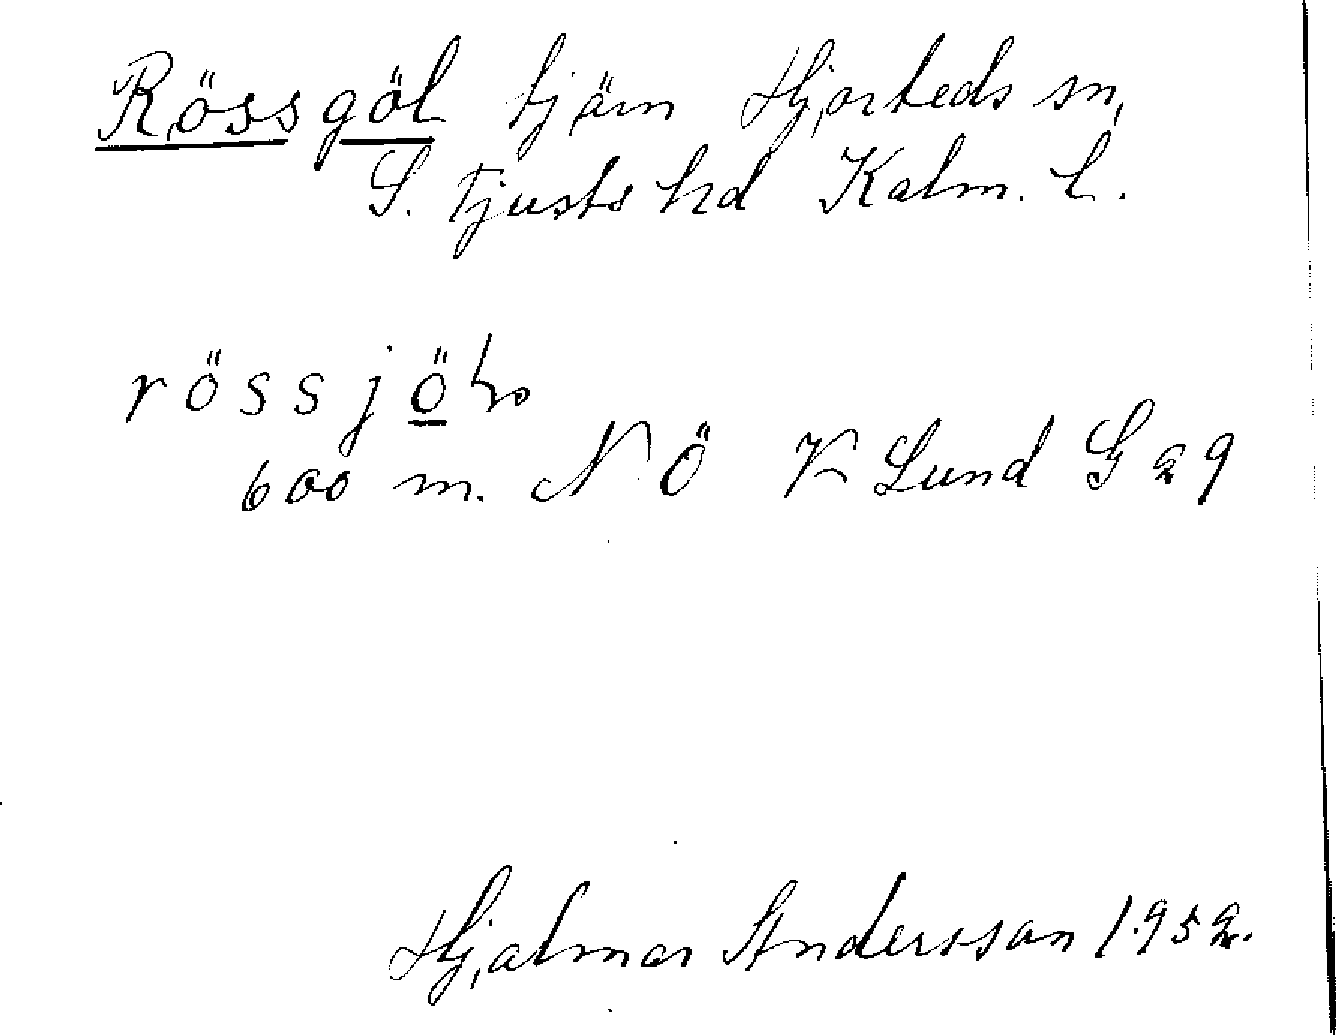 Rössgöl tjärn Hjorteds sn,
S. Tjusts hd Kalm. L.
rössjö
600 m. NÖ K Lund G 29
Hjalmar Andersson 1952.